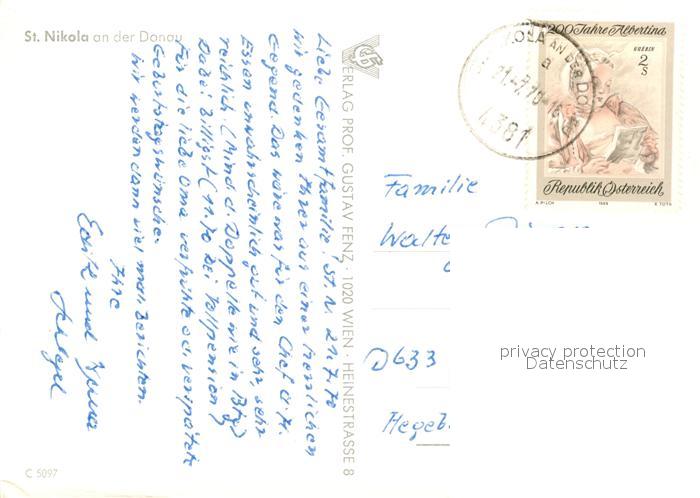 St. Nikola an der Donau
Liebe Gesamtfamilie! St. N. 21.7.70
Wir gedenken Ihrer aus einer herrlichen
Gegend. Das wäre was für den Chef u.
Essen unwahrscheinlich gut und sehr, sehr
reichlich. (Mind. d. Doppelte wie in
Dabei billigst (11.70 bei Vollpension)
Für die liebe Oma verfrühte od. verspätete
Geburtstagswünsche.
Wir werden dann viel mal berichten.
Ihre
Edith und
VERLAG PROF. GUSTAV FENZ · 1020 WIEN · HEINESTRASSE 8
C 5097
NIKOLA AN DER DONAU
a
21.-7.70-16
4381
200 Jahre Albertina
GUERCIN
2
S
Republik Österreich
A. PILCH 1969 K. TOTH
Familie
Walte
D633
Hegeb.
privacy protection
Datenschutz